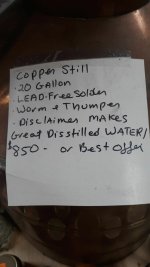 COPPER STILL
• 20 GALLON
• LEAD-Free Solder
• Worm & Thumper
• Disclaimer MAKES
Great Disstilled WATER!
$850- or Best Offer